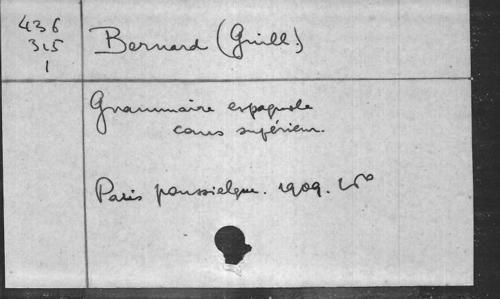 436
315
1
Bernard (Guill.)
Grammaire espagnole
cours supérieur.
Paris poussielgue. 1909. in 8°